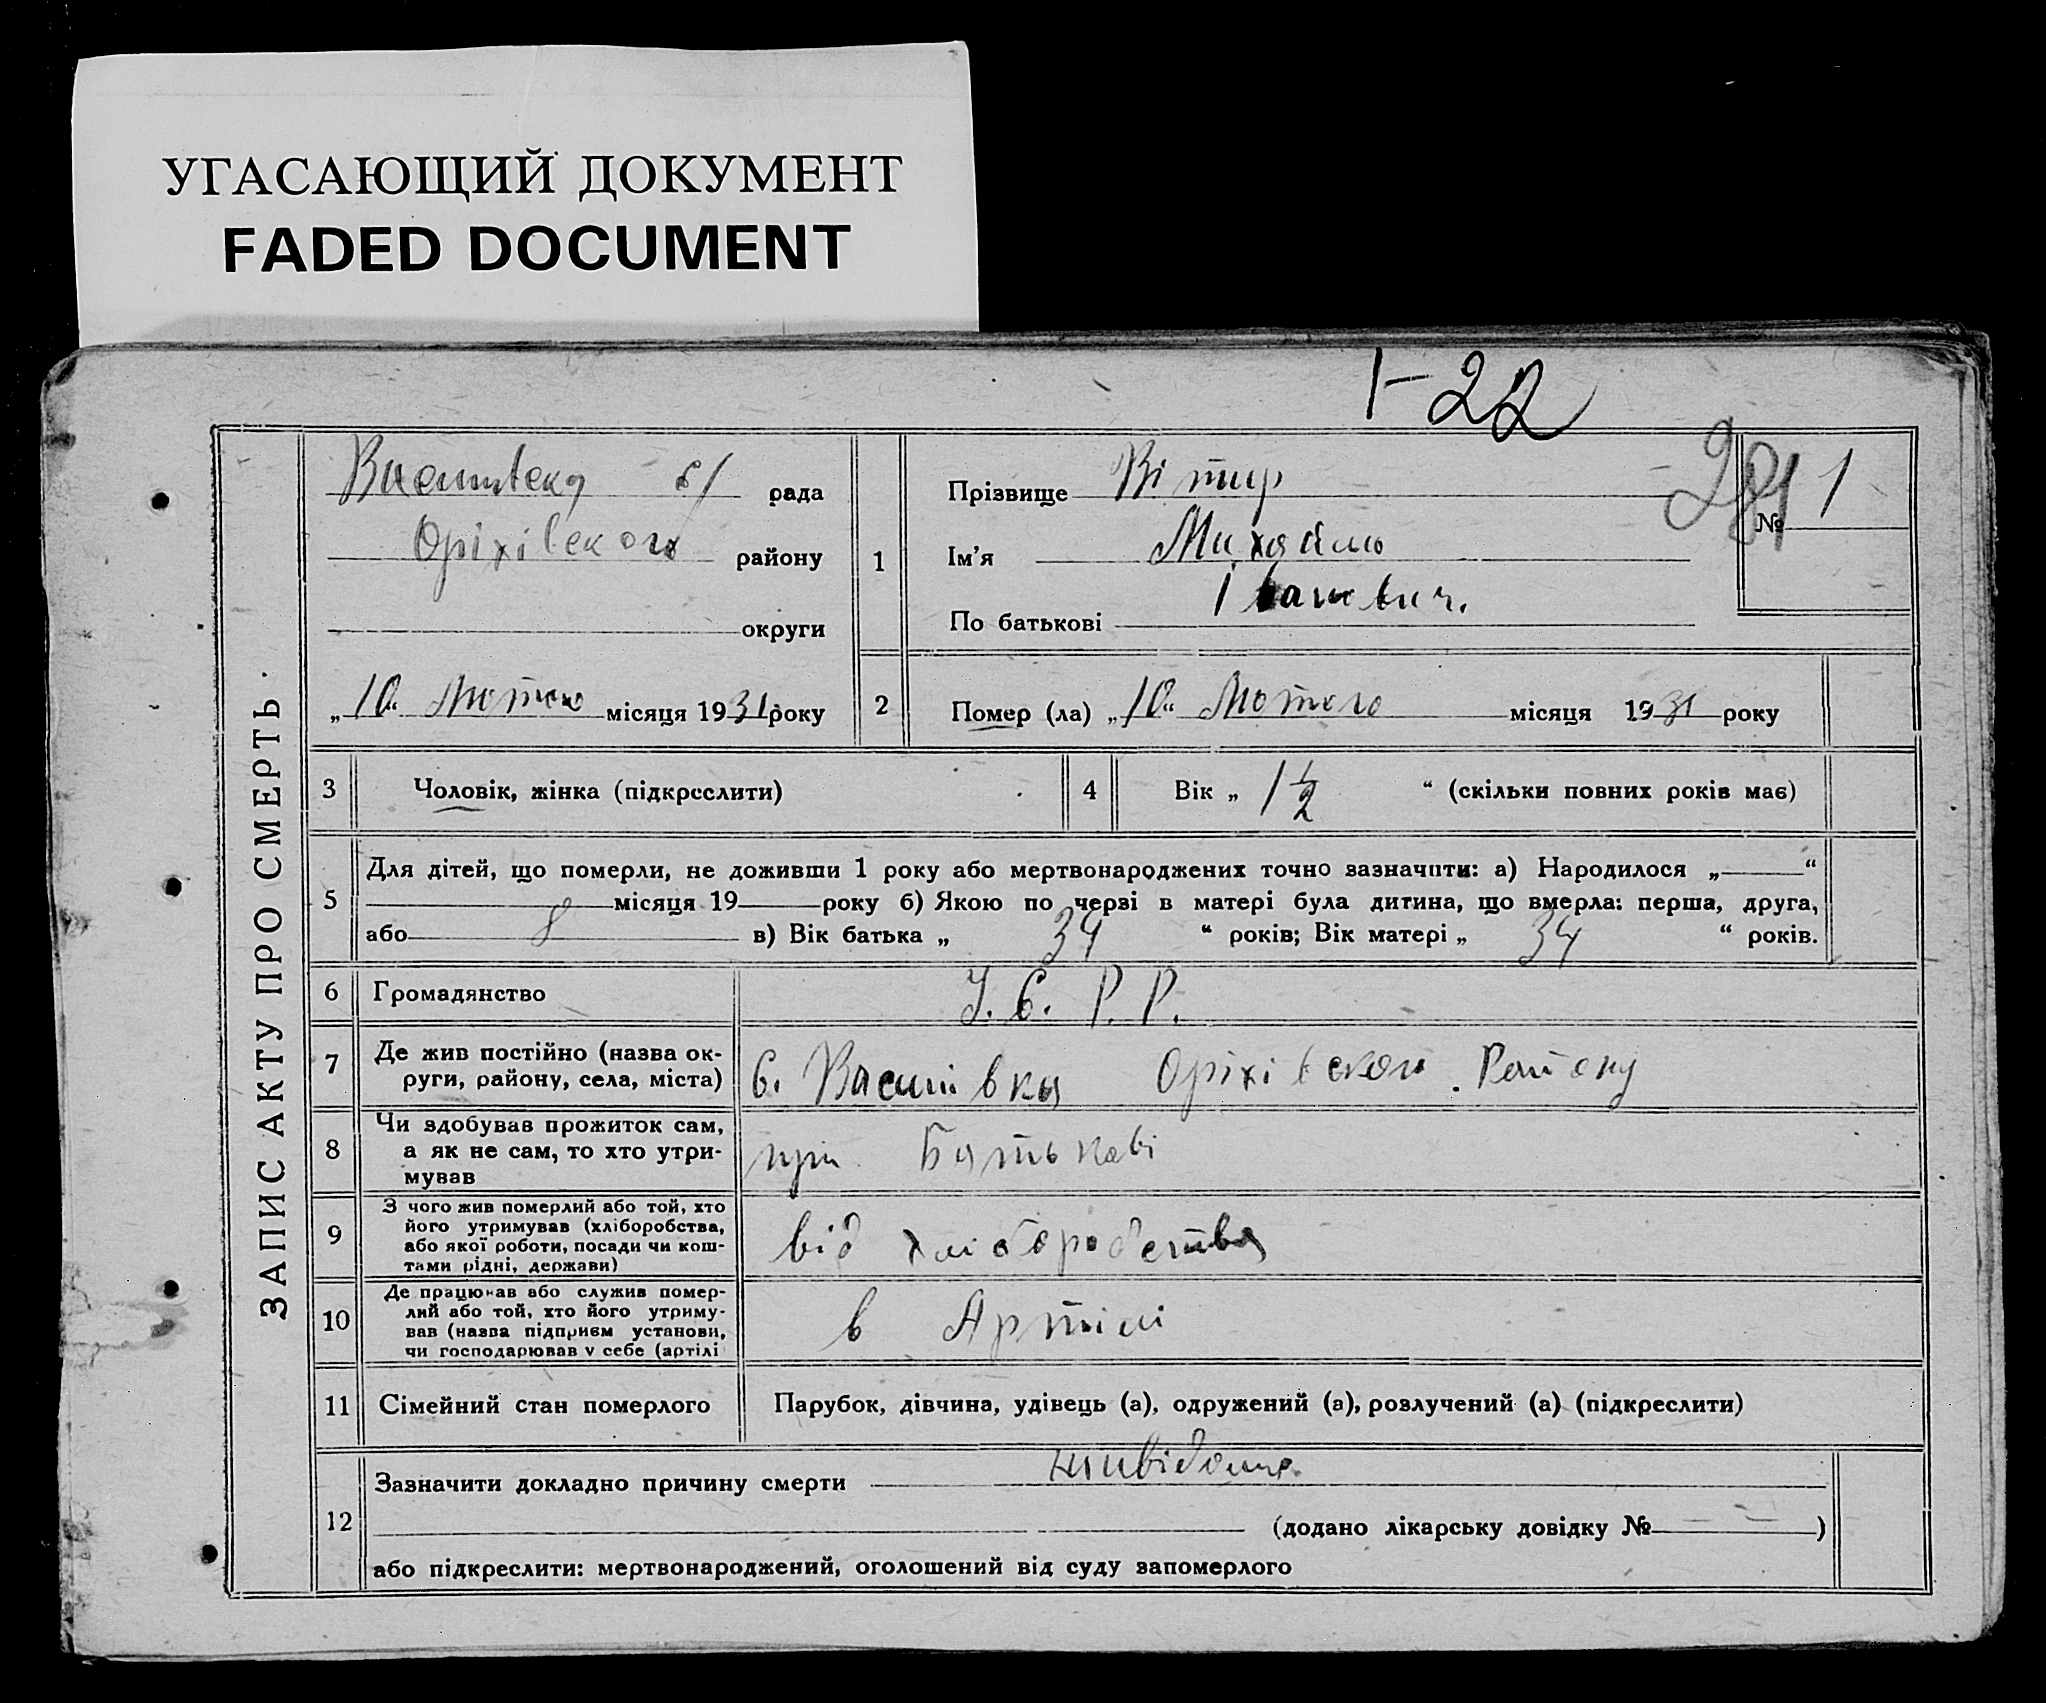 УГАСАЮЩИЙ ДОКУМЕНТ
FADED DOCUMENT
1-22
ЗАПИС АКТУ ПРО СМЕРТЬ.
с/ рада
Оріхівського району
округи
„10“ Лютого місяця 1931 року
1
Прізвище Вітир
Ім’я Михайло
По батькові Іванович.
№ 1
2
Помер (ла) „10“ Лютого місяця 1931 року
3
Чоловік, жінка (підкреслити)
4
Вік „ 1 1/2 “ (скільки повних років має)
5
Для дітей, що померли, не доживши 1 року або мертвонароджених точно зазначити: а) Народилося „ “
місяця 19 року б) Якою по черзі в матері була дитина, що вмерла: перша, друга,
або 8 в) Вік батька „ 34 “ років; Вік матері „ 34 “ років.
6
Громадянство
У. С. Р. Р.
7
Де жив постійно (назва ок-
руги, району, села, міста)
с. Василівка Оріхівского Району
8
Чи здобував прожиток сам,
а як не сам, то хто утри-
мував
при Батькові
9
З чого жив померлий або той, хто
його утримував (хліборобства,
або якої роботи, посади чи кош-
тами рідні, держави)
від хліборобства
10
Де працював або служив помер-
лий або той, хто його утриму-
вав (назва підприєм установи,
чи господарював у себе (артілі
в Артілі
11
Сімейний стан померлого
Парубок, дівчина, удівець (а), одружений (а), розлучений (а) (підкреслити)
12
Зазначити докладно причину смерти
(додано лікарську довідку № )
або підкреслити: мертвонароджений, оголошений від суду запомерлого